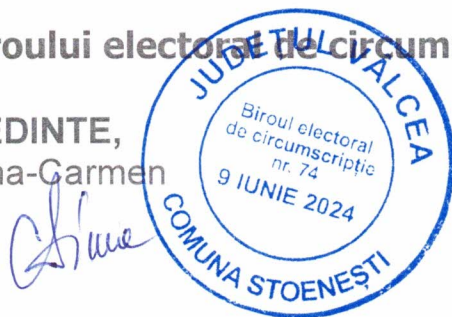 roului electoral de circum
EDINTE,
na-Carmen
JUDEȚUL VÂLCEA
Biroul electoral
de circumscripție
nr. 74
9 IUNIE 2024
COMUNA STOENEȘTI